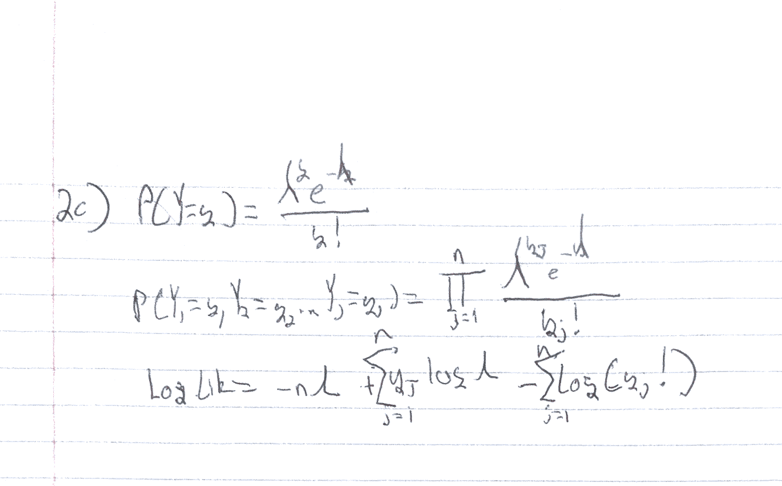 2c) P(Y=y) = λ^y e^-λ / y!
P(Y₁=y₁ Y₂=y₂ ... Yⱼ=yⱼ) = ∏_{j=1}^{n} λ^{yⱼ} e^{-λ} / yⱼ!
Log Lik = -nλ + ∑_{j=1}^{n} yⱼ log λ - ∑_{j=1}^{n} Log(yⱼ!)